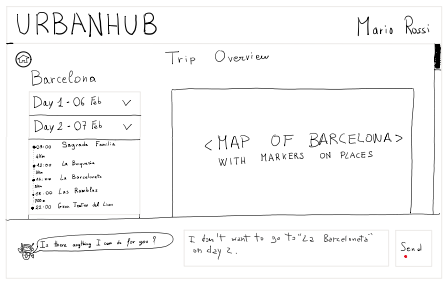 URBANHUB
Mario Rossi
Trip Overview
Barcelona
Day 1 - 06 Feb
Day 2 - 07 Feb
Sagrada Familia
La Boqueria
La Barceloneta
Las Ramblas
22:00 Gran Teatro del Liceu
<MAP OF BARCELONA>
WITH MARKERS ON PLACES
Is there anything I can do for you?
I don't want to go to "La Barceloneta"
on day 2.
Send